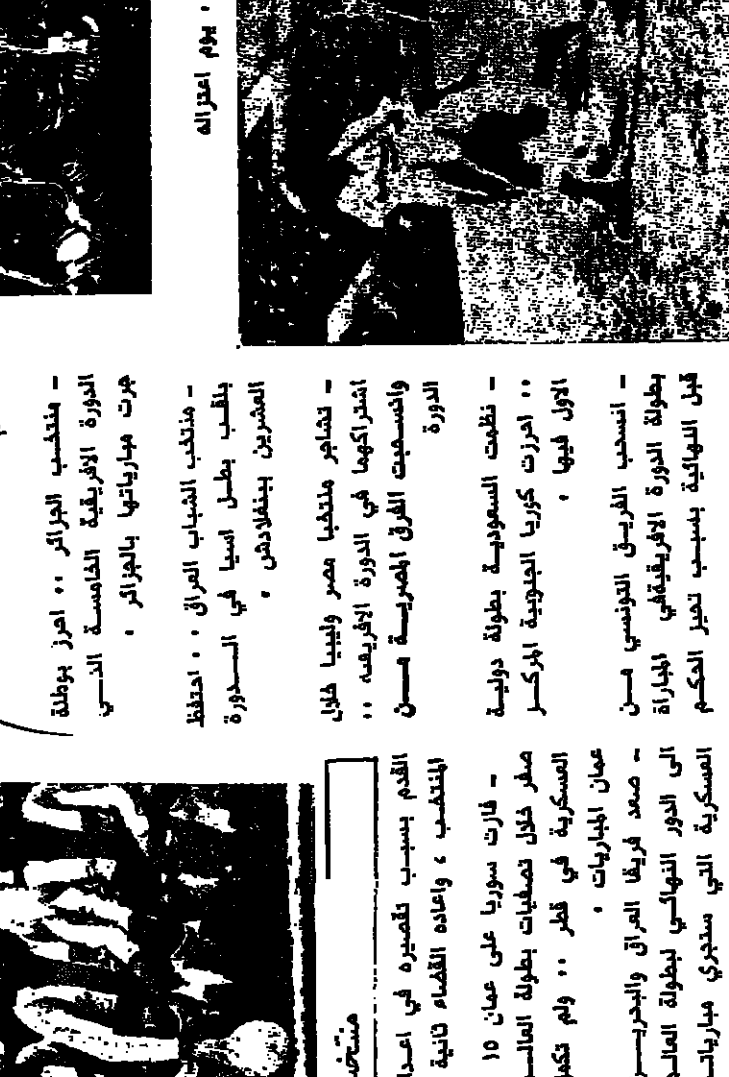 ، يوم اعتزاله
- منتخب الجزائر ،، احرز بوطلة
الدورة الافريقية الخامسة التي
جرت مبارياتها بالجزائر ،
- منتخب الشباب العراق ، احتفظ
بلقب بطل اسيا في الدورة
العشرين ببنغلادش ،
- تشاجر منتخبا مصر وليبيا خلال
اشتراكهما في الدورة الافريقيه ،،
وانسحبت الفرق المصرية من
الدورة
- نظمت السعودية بطولة دولية
،، احرزت كوريا الجنوبية المركز
الاول فيها ،
- انسحب الفريق التونسي من
بطولة الدورة الافريقيةفي المباراة
قبل النهائية بسبب تحيز الحكم
القدم بسبب تقصيره في
المنتخب ، واعاده القضاء ثانية
- فازت سوريا على عمان ١٥
صفر خلال تصفيات بطولة
العسكرية في قطر ،، ولم
عمان المباريات ،
- صعد فريقا العراق
الى الدور النهائي لبطولة
العسكرية التي ستجري